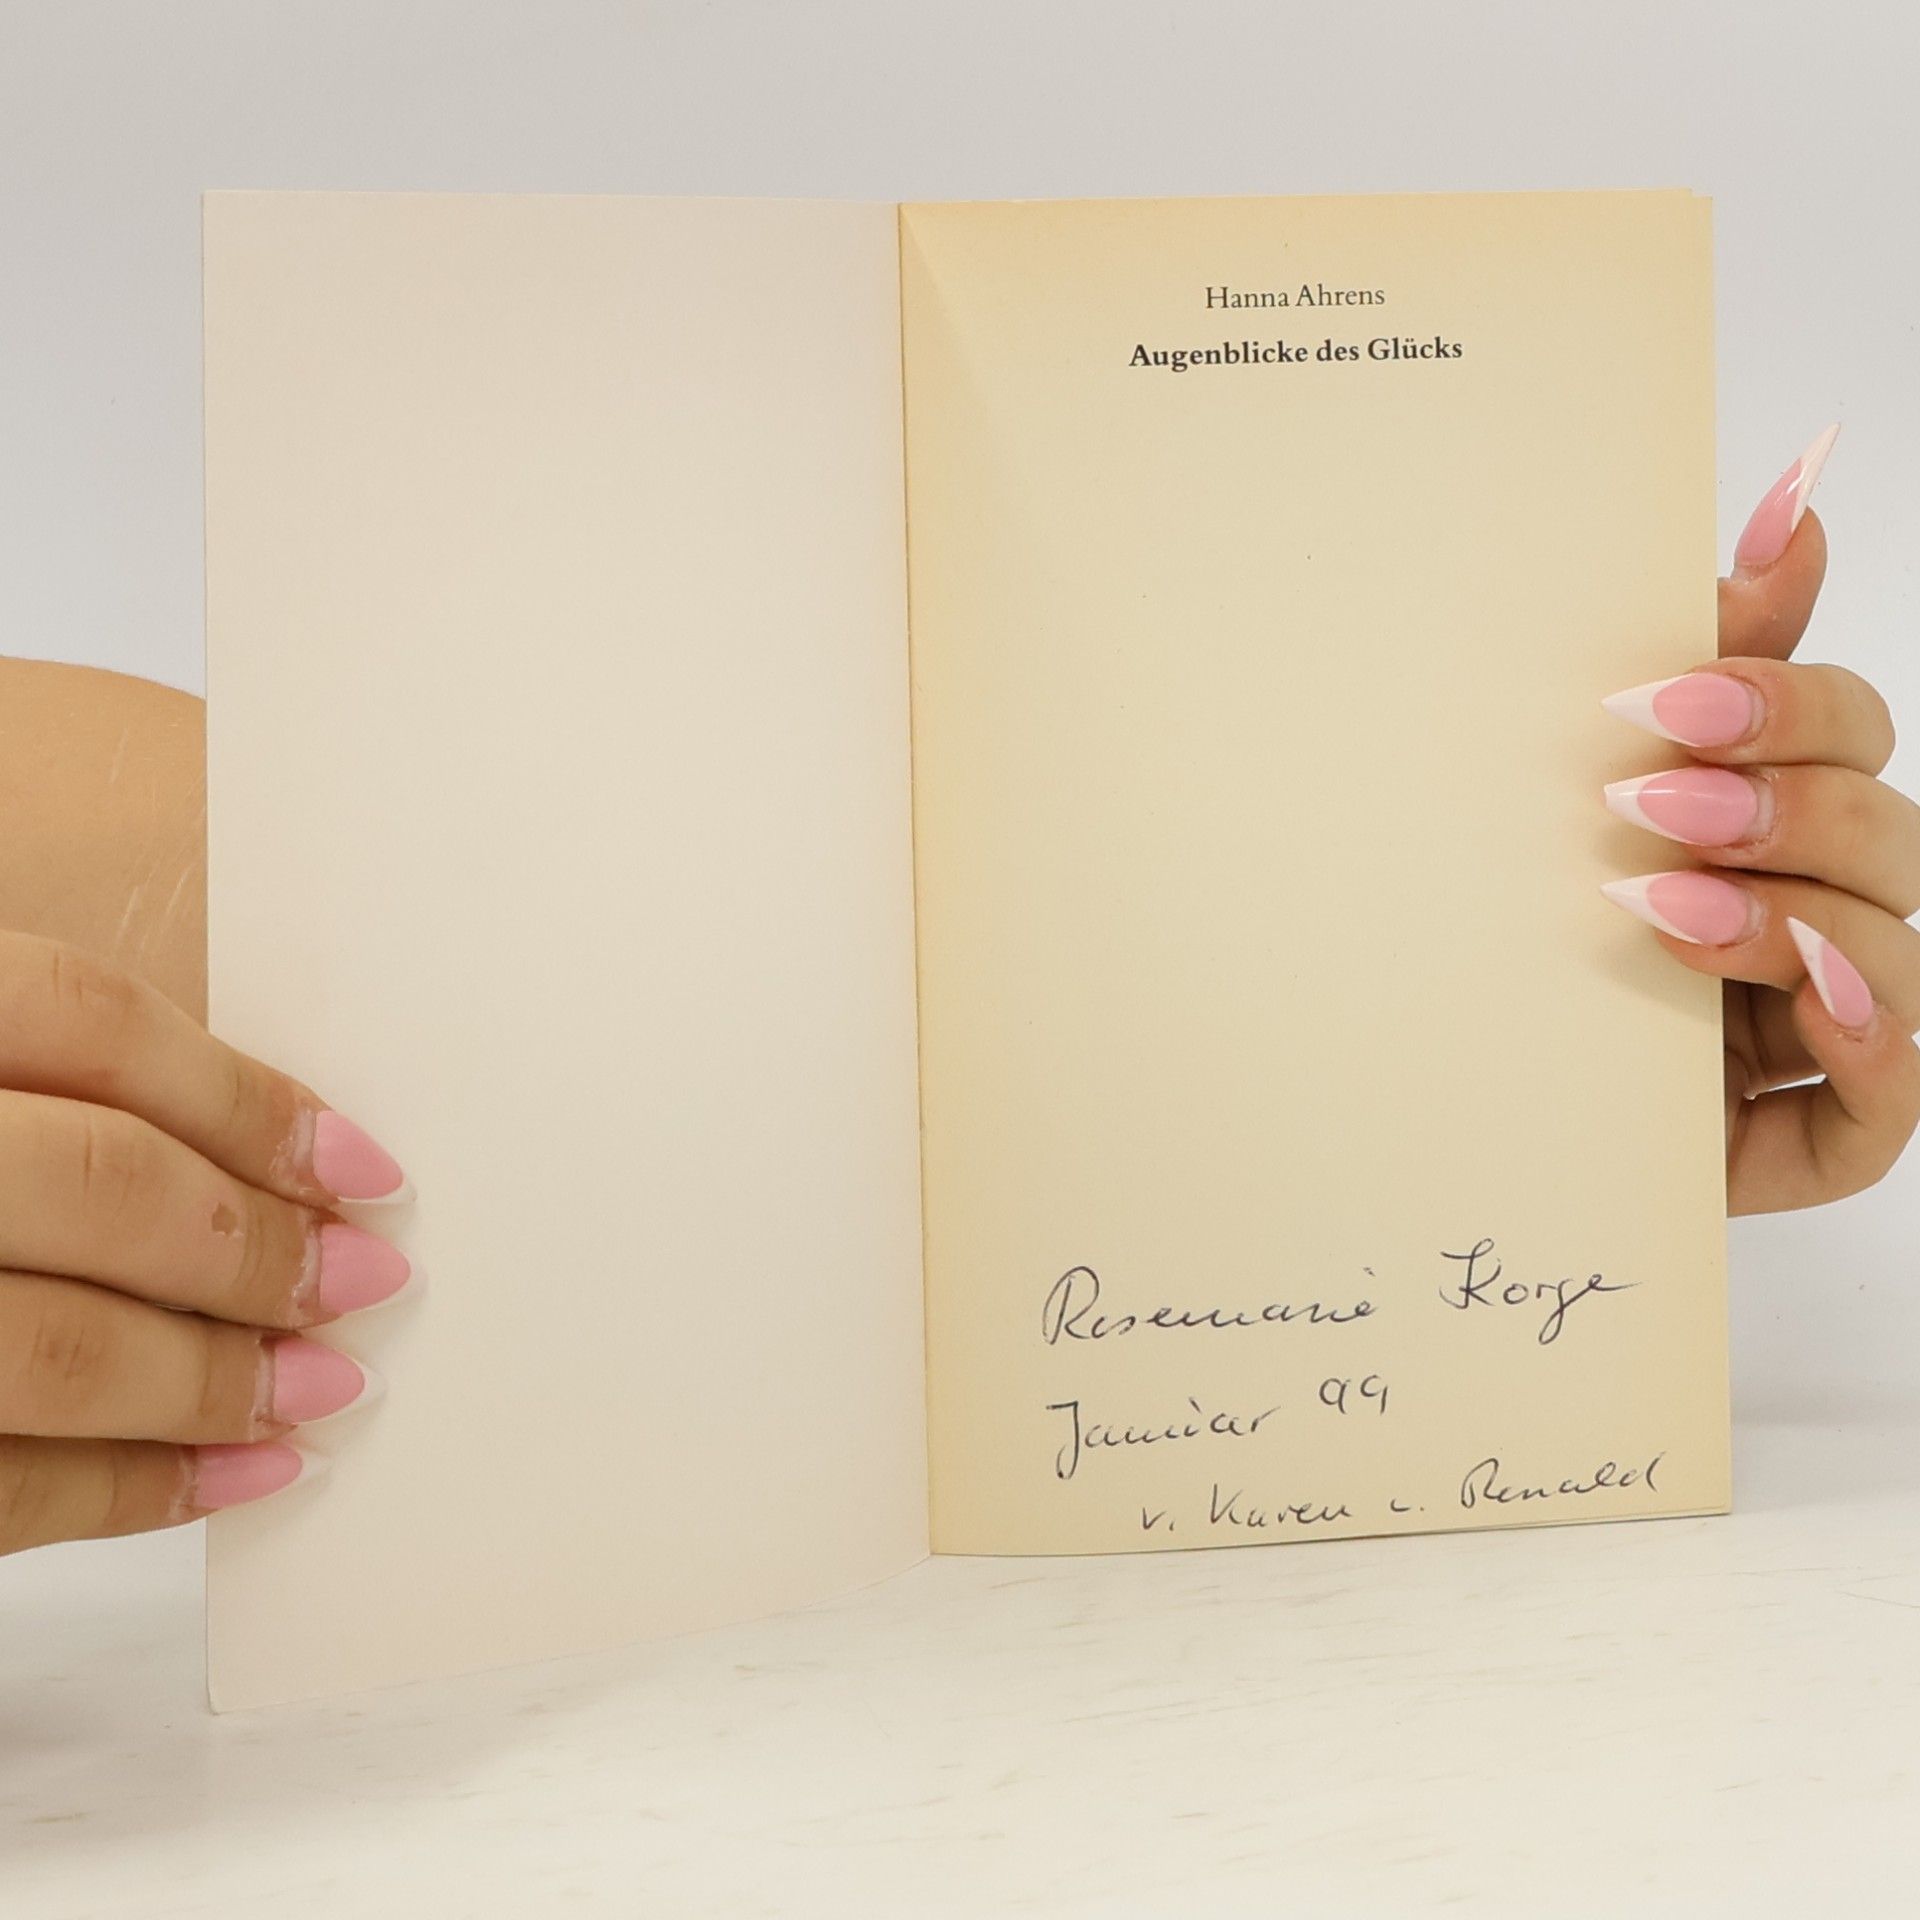 Hanna Ahrens
Augenblicke des Glücks
Rosemarie Korge
Januar 99
v. Karen u. Renald